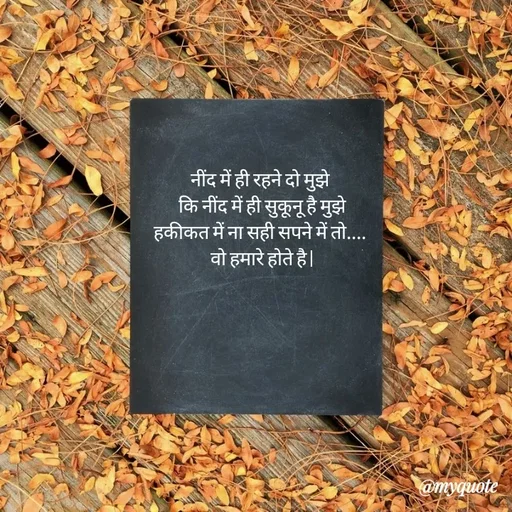 नींद में ही रहने दो मुझे
कि नींद में ही सुकूनू है मुझे
हकीकत में ना सही सपने में तो....
वो हमारे होते है|
@myquote